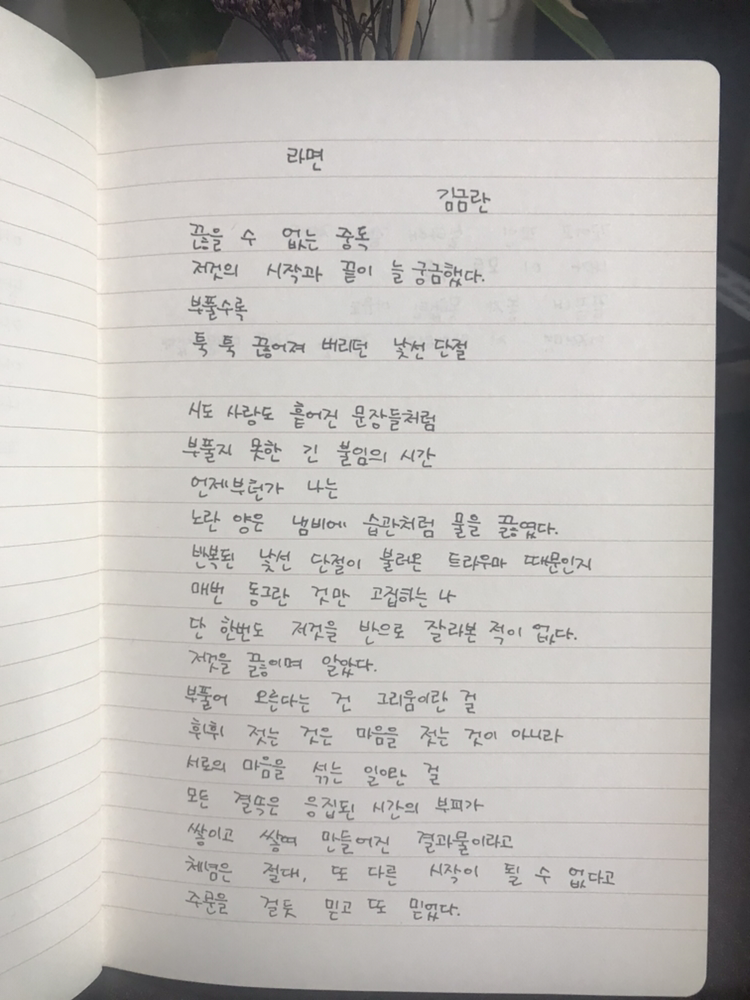 라면
김금란
끊을 수 없는 중독
저것의 시작과 끝이 늘 궁금했다.
부풀수록
툭 툭 끊어져 버리던 낯선 단절
시도 사랑도 흩어진 문장들처럼
부풀지 못한 긴 불임의 시간
언제부턴가 나는
노란 양은 냄비에 습관처럼 물을 끓였다.
반복된 낯선 단절이 불러온 트라우마 때문인지
매번 동그란 것만 고집하는 나
단 한번도 저것을 반으로 잘라본 적이 없다.
저것을 끓이며 알았다.
부풀어 오른다는 건 그리움이란 걸
휘휘 젓는 것은 마음을 젓는 것이 아니라
서로의 마음을 섞는 일이란 걸
모든 결똑은 응집된 시간의 부피가
쌓이고 쌓여 만들어진 결과물이라고
체념은 절대, 또 다른 시작이 될 수 없다고
주문을 걸듯 믿고 또 믿었다.